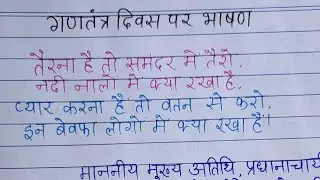 गणतंत्र दिवस पर भाषण
तैरना है तो समंदर मे तैरो,
नदी नालो मे क्या रखा है,
प्यार करना है तो वतन से करो,
इन बेवफा लोगो मे क्या रखा है।
माननीय मुख्य अतिथि, प्रधानाचार्य